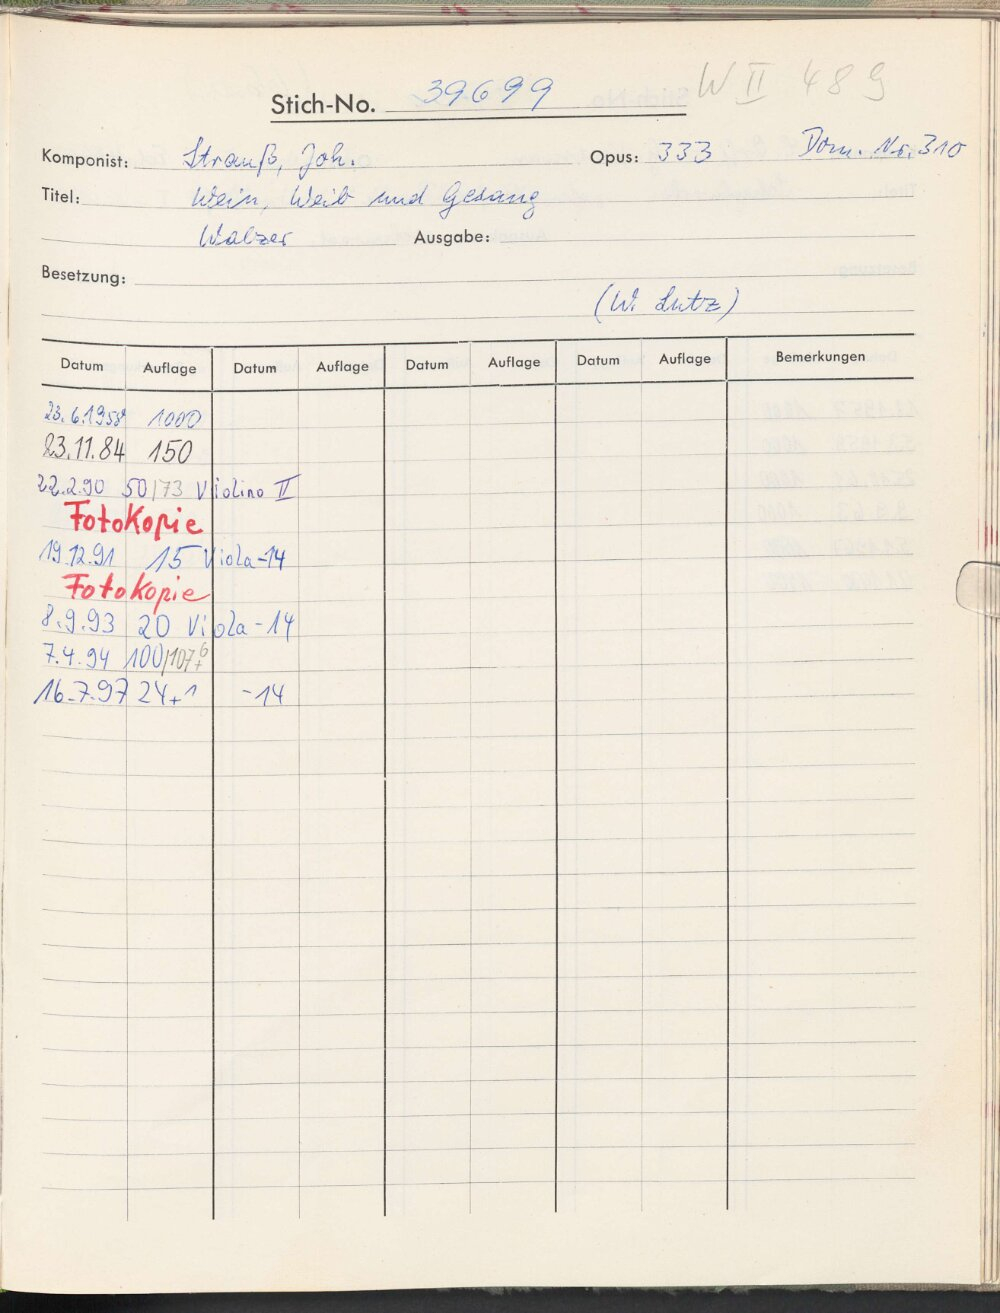 W II 489
Stich-No. 39699
Komponist: Strauß, Joh. Opus: 333 Dom. Nr. 310
Titel: Wein, Weib und Gesang
Walzer Ausgabe:
Besetzung:
(W. Lutz)
Datum Auflage Datum Auflage Datum Auflage Datum Auflage Bemerkungen
23.6.1958 1000
23.11.84 150
22.2.90 50/73 Violino II
Fotokopie
19.12.91 15 Viola-14
Fotokopie
8.9.93 20 Viola-14
7.4.94 100/107+6
16.7.97 24+1 -14